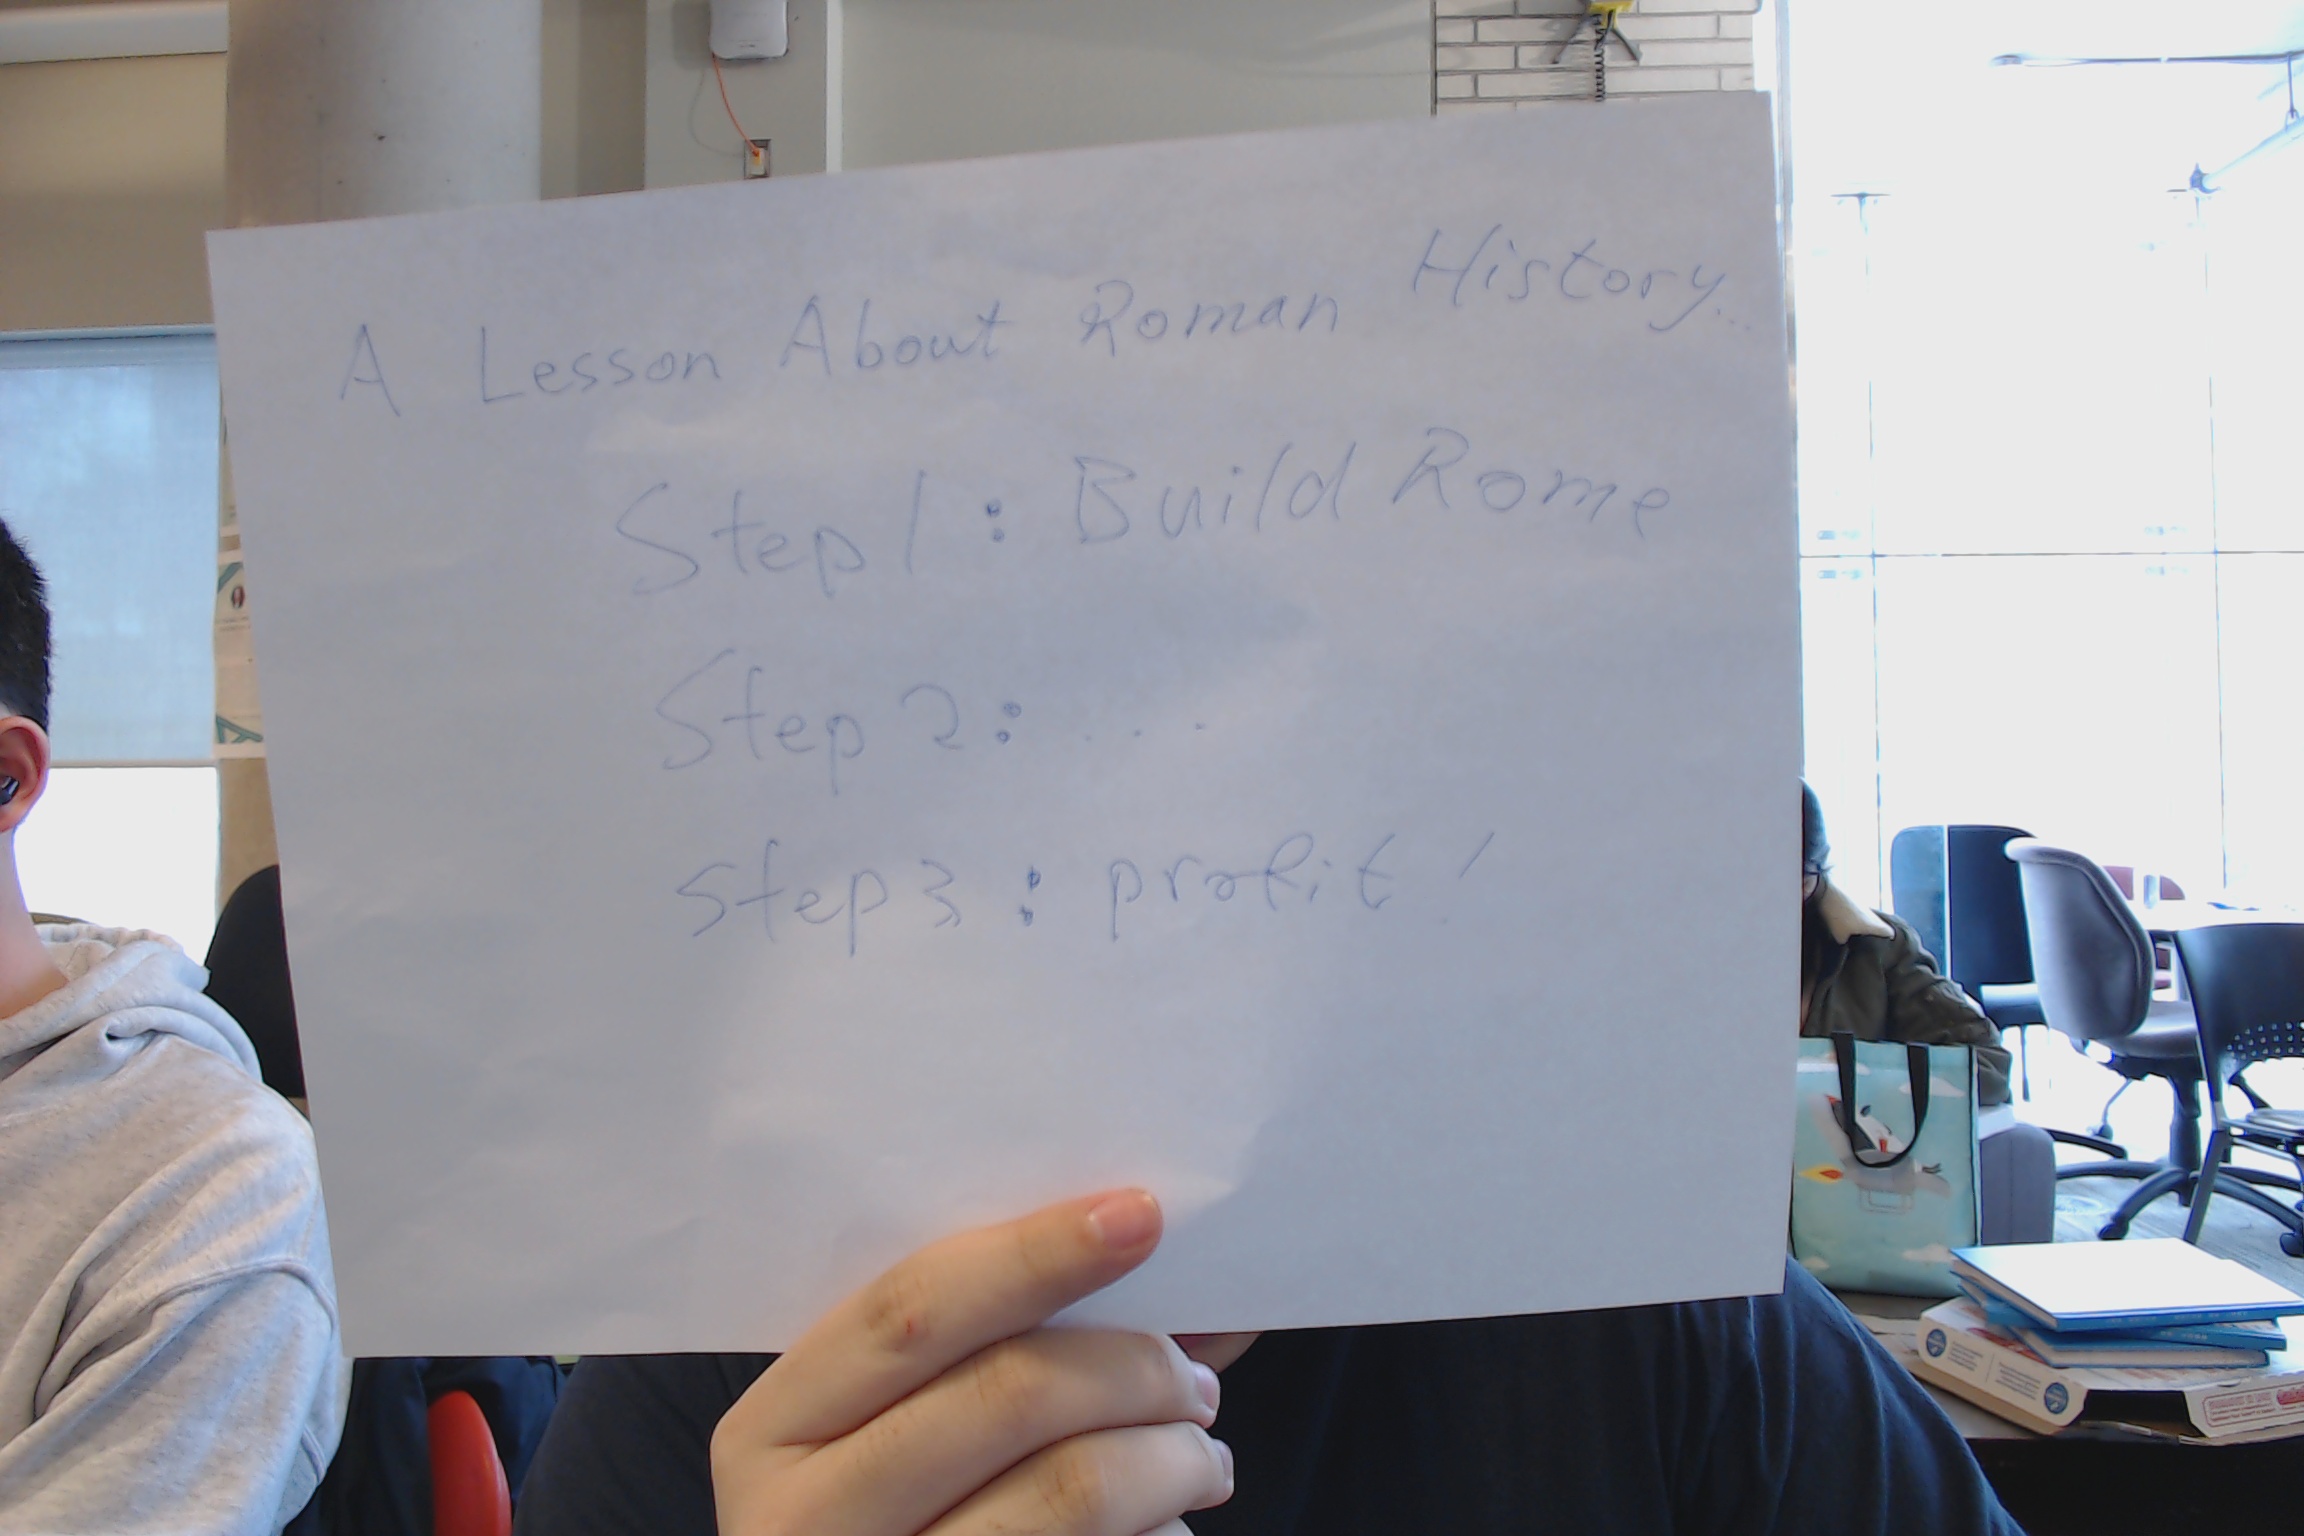 A Lesson About Roman History...
Step 1: Build Rome
Step 2: ...
Step 3: profit!